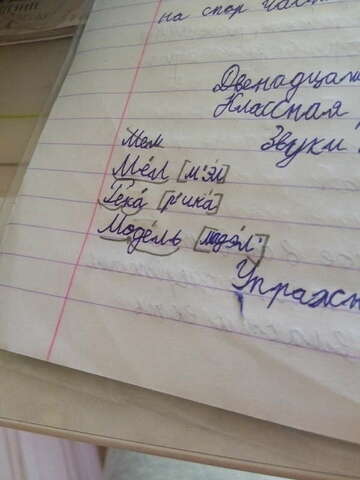 на спор
Двенадца
Классная
Звуки
Мем
Мел [м'эл
Река [р'ика]
Модель [модэл']
Упражн